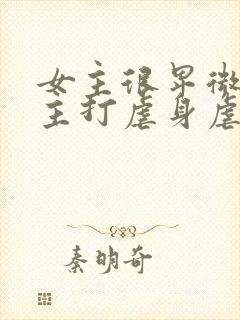 女主很早微
主打虐身虐
秦明奇